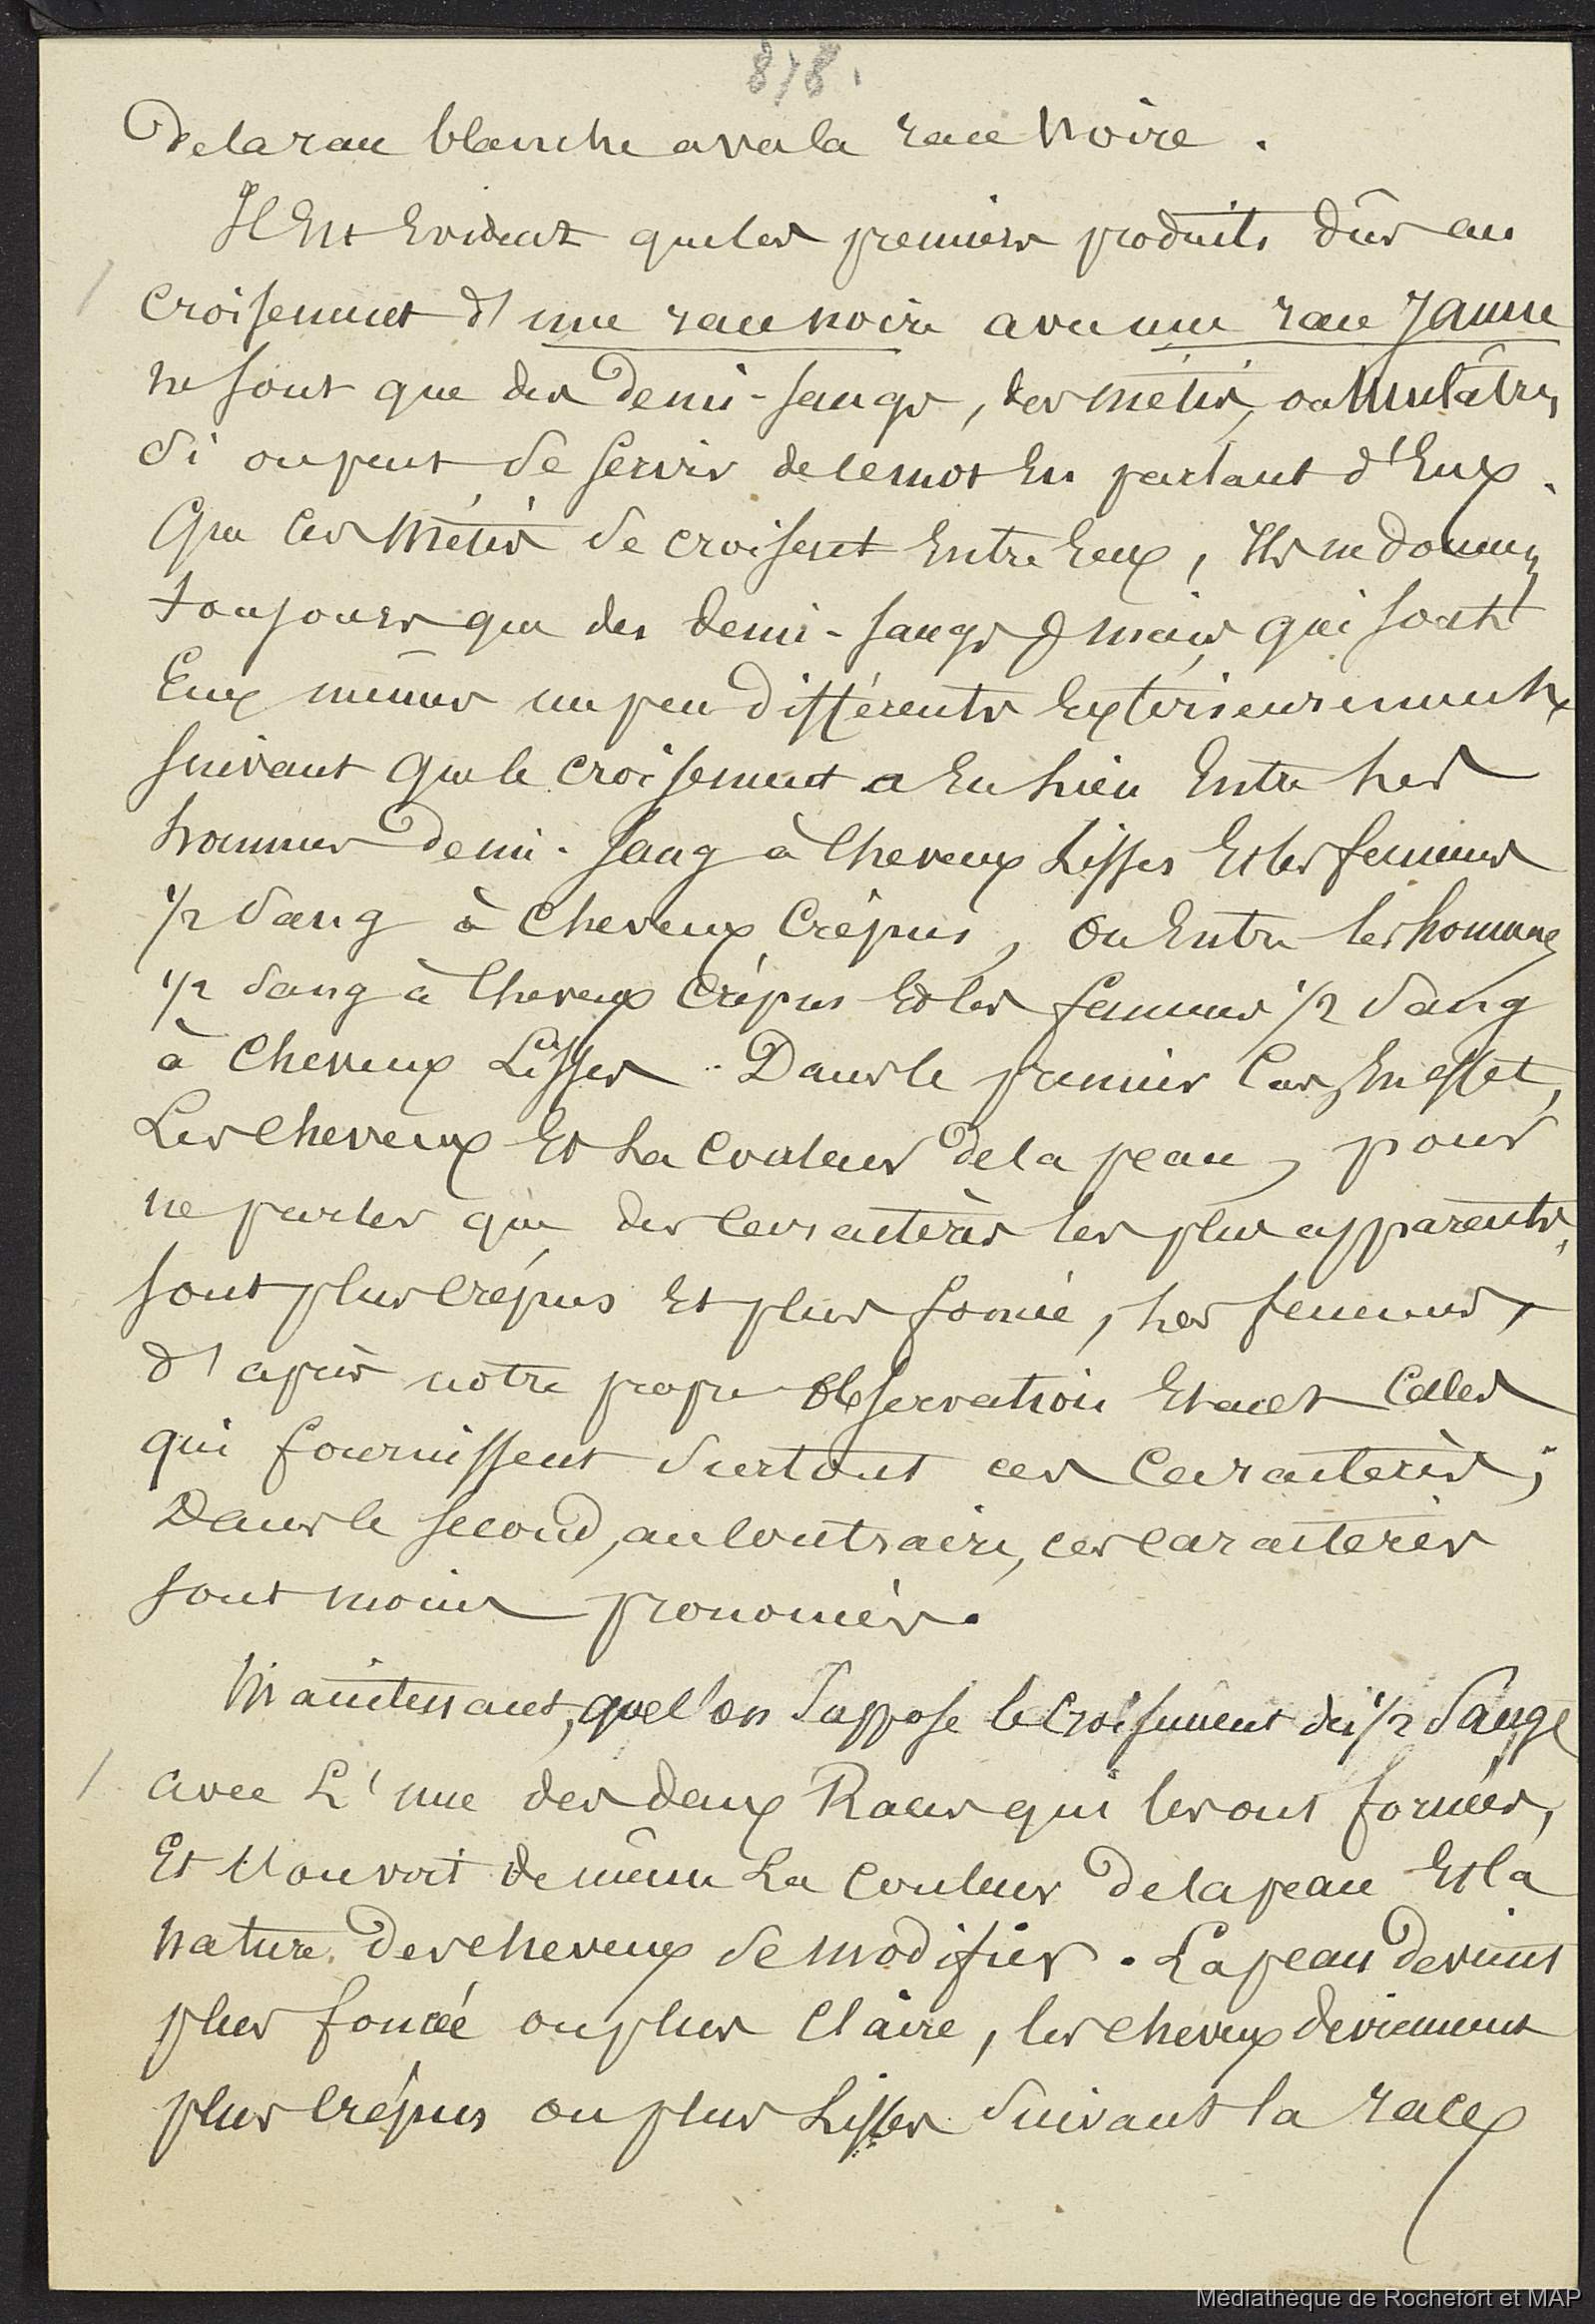 878.
De la race blanche avec la race noire.
Il Est Evident que les premiers produits dûs au
croisement d'une race noire avec une race Jaune
ne sont que des Demi-sangs, des métis, ou Mulâtres,
si on peut se servir de ce mot En parlant d'Eux.
Que ces métis se croisent Entre Eux, Ils ne donnent
toujours que des demi-sangs mais qui sont
Eux mêmes un peu différents Extérieurement
suivant que le croisement a Eu lieu Entre les
hommes Demi-sang à Cheveux Lisses Et les femmes
1/2 sang à Cheveux Crépus, ou Entre les hommes
1/2 sang à Cheveux Crépus Et les femmes 1/2 sang
à Cheveux Lisses. Dans le premier Cas, En effet,
Les Cheveux Et La Couleur de la peau, pour
ne parler que des Caractères les plus apparents,
sont plus Crépus Et plus foncée, les femmes,
d'après notre propre Observation Etant Celles
qui fournissent surtout ces Caractères;
Dans le second, au Contraire, ces Caractères
sont moins prononcés.
Maintenant, que l'on suppose le Croisement des 1/2 sangs
avec L'une des deux Races qui les ont formés,
Et l'on voit de même La Couleur de la peau Et la
nature des cheveux se modifier. La peau devient
plus foncée ou plus Claire, les cheveux deviennent
plus Crépus ou plus Lisses suivant la race
Médiathèque de Rochefort et MAP